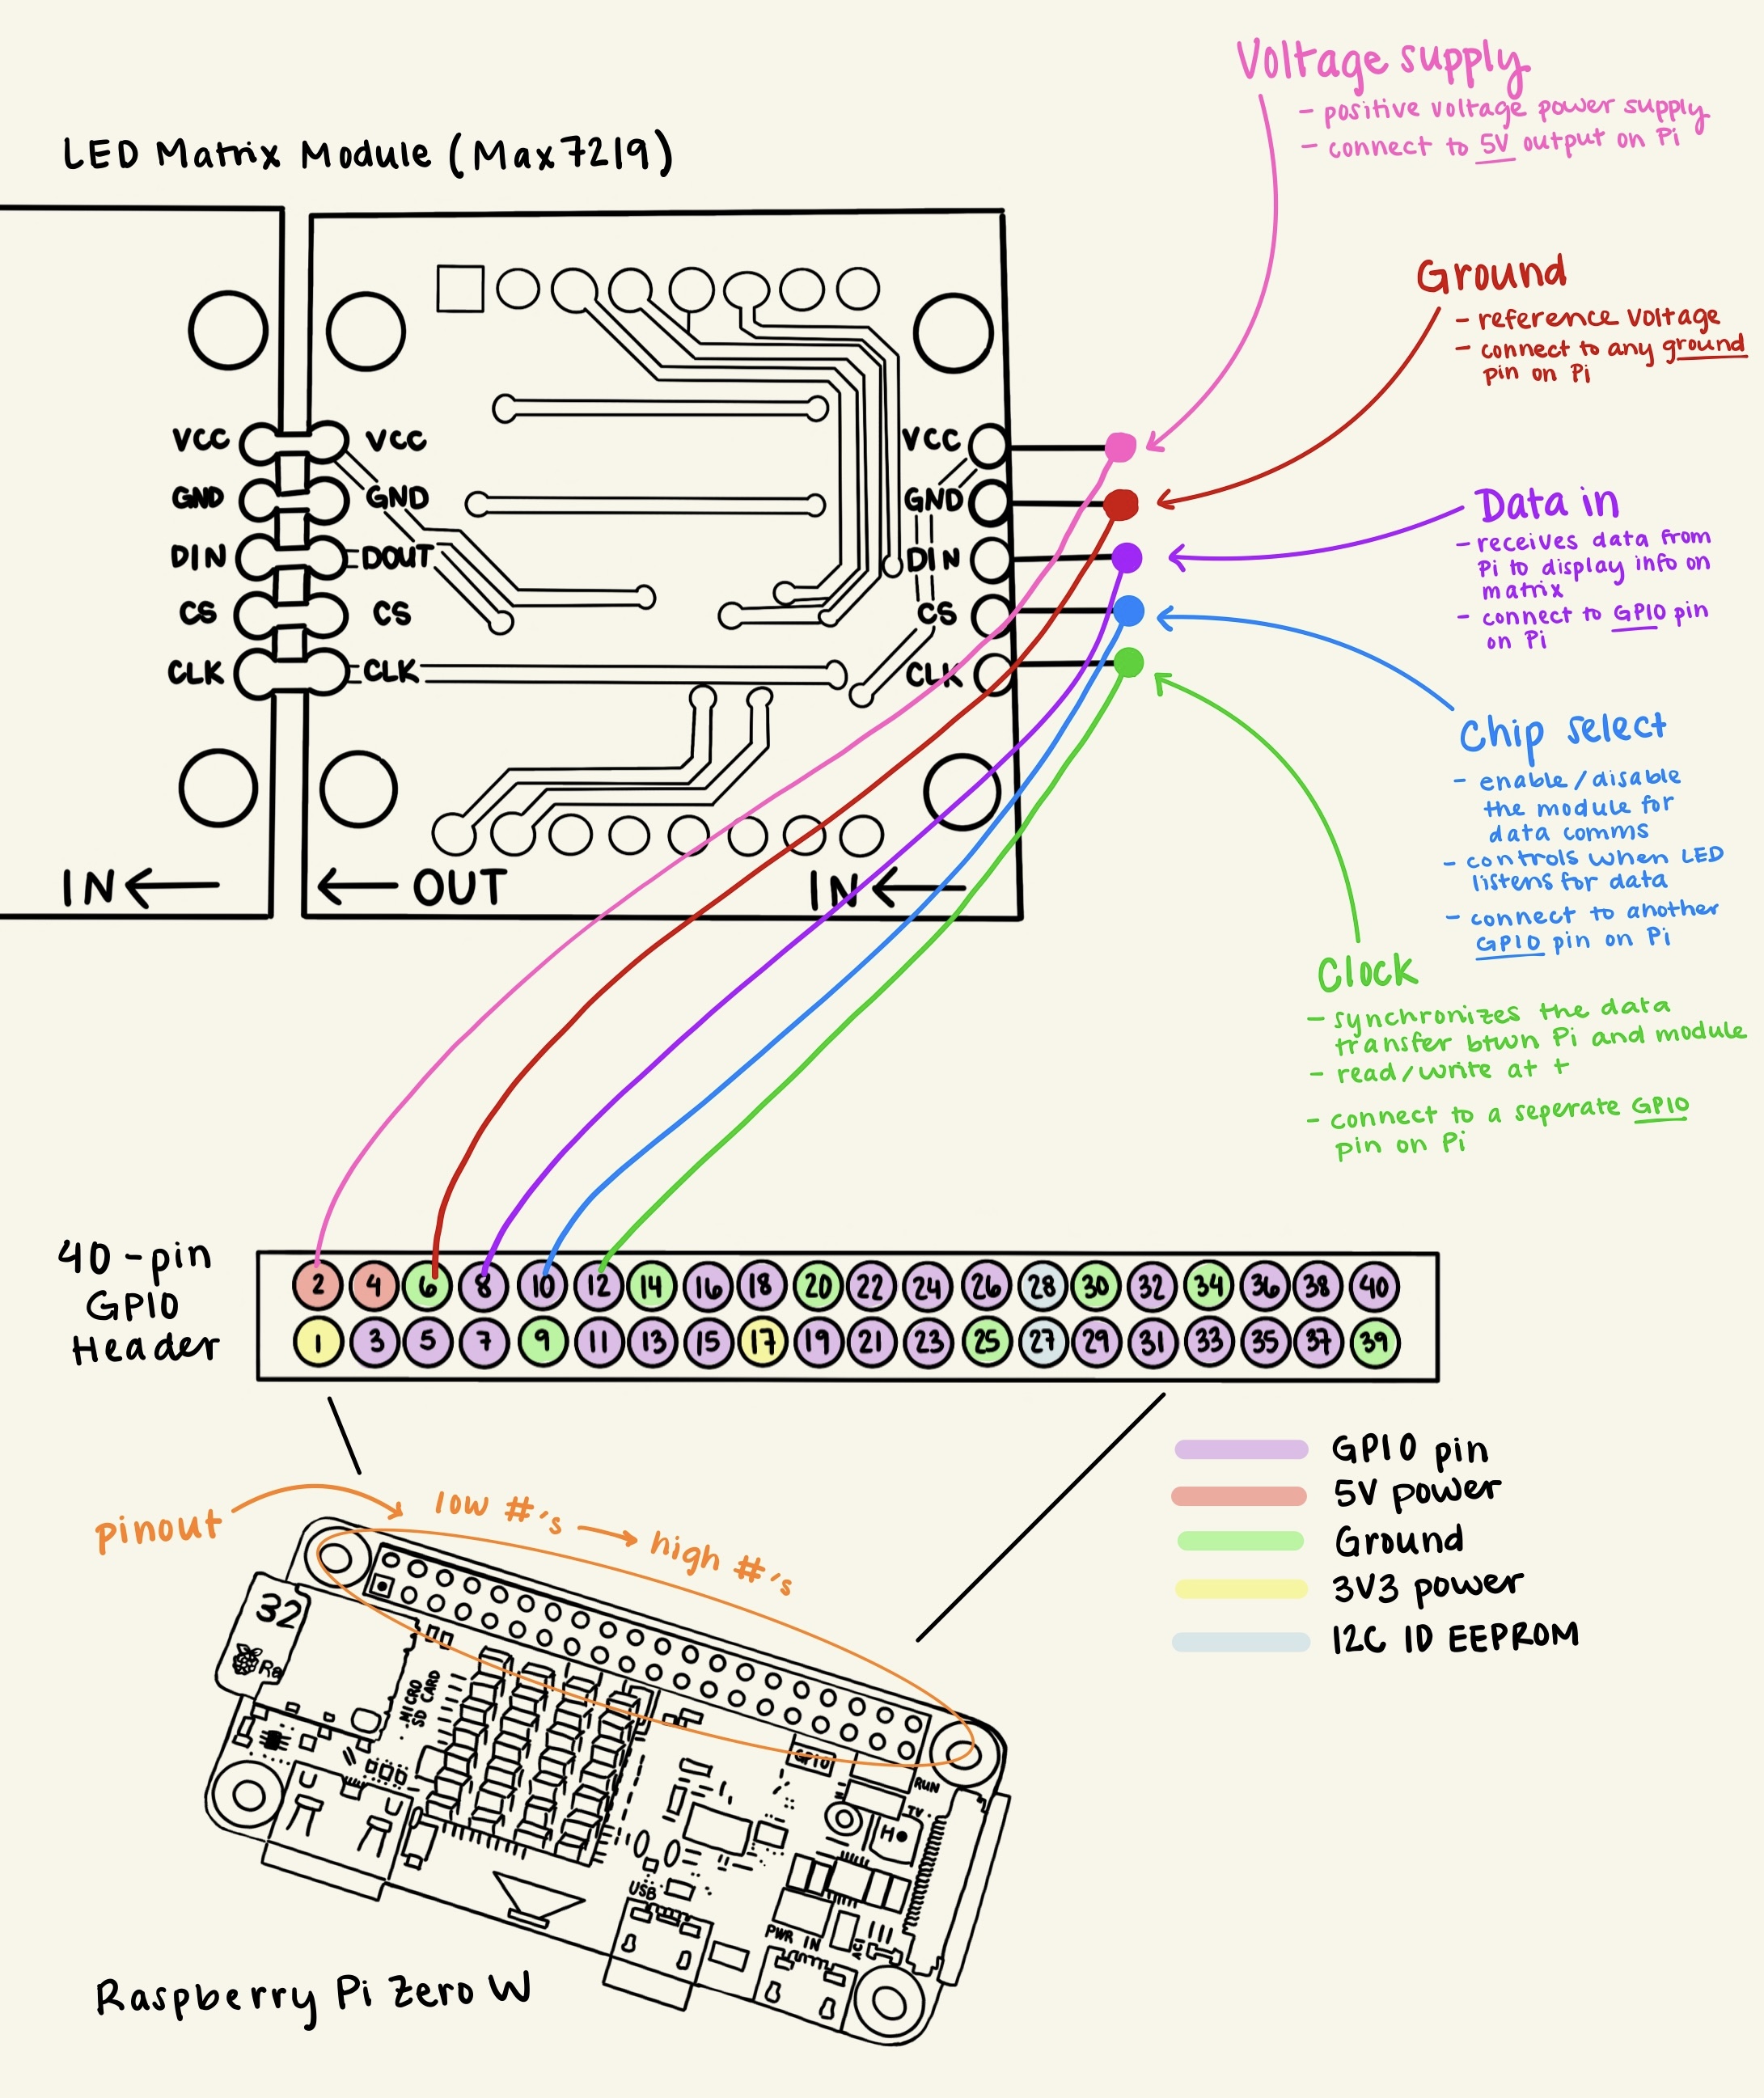 Voltage supply
- positive voltage power supply
- connect to 5V output on Pi
LED Matrix Module (Max7219)
Ground
- reference voltage
- connect to any ground
pin on Pi
VCC VCC VCC
GND GND GND
DIN DOUT DIN
CS CS CS
CLK CLK CLK
IN OUT IN
Data in
- receives data from
Pi to display info on
matrix
- connect to GPIO pin
on Pi
Chip select
- enable/disable
the module for
data comms
- controls when LED
listens for data
- connect to another
GPIO pin on Pi
Clock
- synchronizes the data
transfer btwn Pi and module
- read/write at +
- connect to a seperate GPIO
pin on Pi
40-pin
GPIO
Header
2 4 6 8 10 12 14 16 18 20 22 24 26 28 30 32 34 36 38 40
1 3 5 7 9 11 13 15 17 19 21 23 25 27 29 31 33 35 37 39
GPIO pin
5V power
Ground
3V3 power
I2C ID EEPROM
pinout
low #'s
high #'s
32
Ra
MICRO
SD CARD
GPIO
RUN
TV
H
USB
PWR IN
ACT
Raspberry Pi Zero W